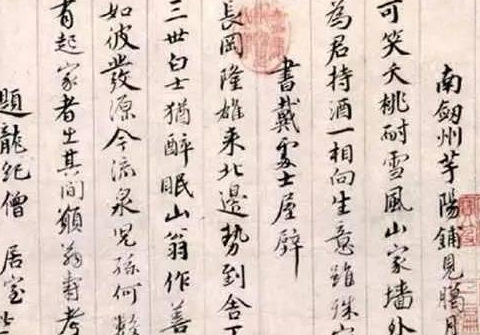 南劒州芋陽鋪見臘月
可笑夭桃耐雪風山家墻外
為君持酒一相向生意雖殊
書戴處士屋壁
長岡隆雄來北邊勢到舍下
三世白士猶醉眠山翁作善
如彼發源今流泉兒孫何數
有起家者出其間願翁壽考
題龍紀僧居室